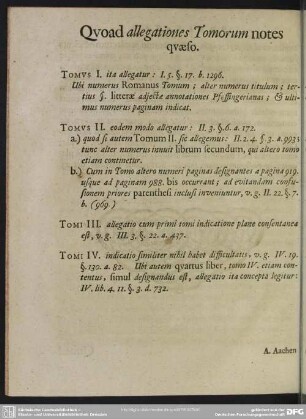 Qvoad allegationes Tomorum notes
qvæso.
Tomvs I. ita allegatur: I. 5. §. 17. b. 1296.
Ubi numerus Romanus Tomum; alter numerus titulum; ter-
tius §. litteræ adjectæ annotationes Pfeffingerianas; & ulti-
mus numerus paginam indicat.
Tomvs II. eodem modo allegatur: II. 3. §. 6. a. 172.
a.) quod si autem Tomum II. sic allegemus: II. 2. 4. §. 3. a. 993:
tunc alter numerus innuit librum secundum, qui altero tomo
etiam continetur.
b.) Cum in Tomo altero numeri paginas designantes a pagina 919.
usque ad paginam 988. bis occurrant; ad evitandam confu-
sionem priores parenthesi inclusi inveniuntur, v. g. II. 22. §. 7.
b. (969.)
Tomi III. allegatio cum primi tomi indicatione plane consentanea
est, v. g. III. 3. §. 22. a. 437.
Tomi IV. indicatio similiter nihil habet difficultatis, v. g. IV. 19.
§. 130. a. 82. Ubi autem qvartus liber, tomo IV. etiam con-
tentus, simul designandus est, allegatio ita concepta legitur:
IV. lib. 4. 11. §. 3. d. 732.
A. Aachen